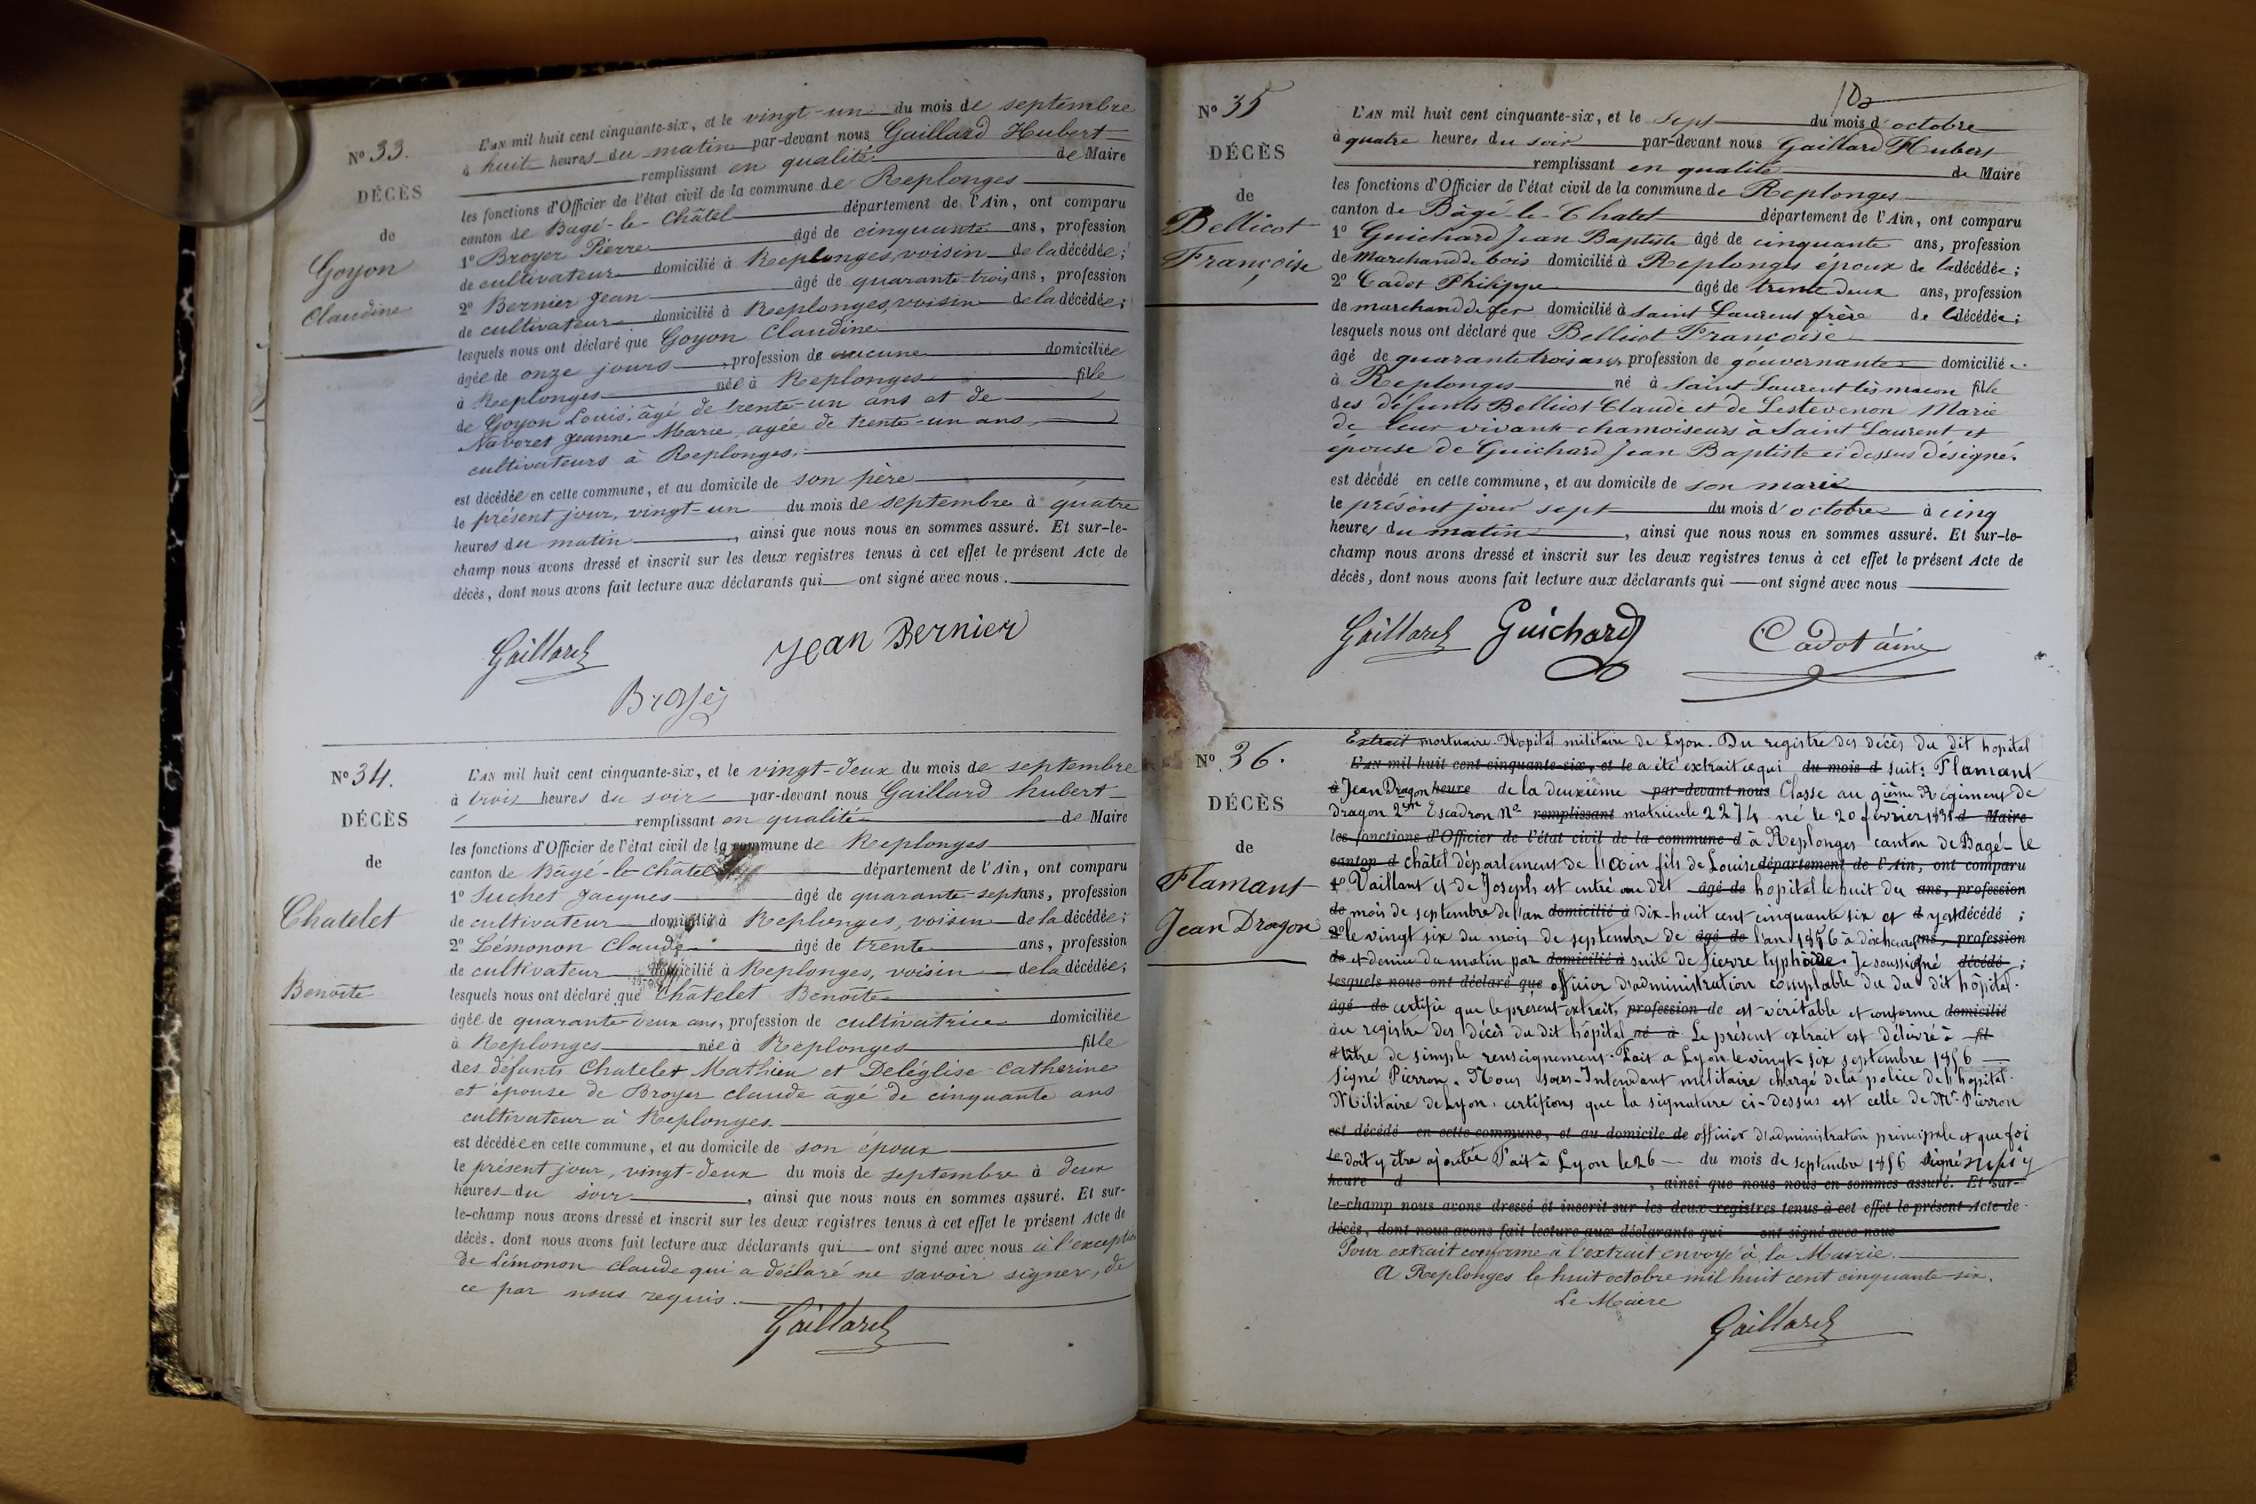 N° 33.
DÉCÈS
de
Goyon
Claudine
L'AN mil huit cent cinquante-six, et le vingt-un du mois de septembre
à huit heures du matin par-devant nous Gaillard Hubert
remplissant en qualité de Maire
les fonctions d'Officier de l'état civil de la commune de Replonges
canton de Bagé-le-Châtel département de l'Ain, ont comparu
1° Broyer Pierre âgé de cinquante ans, profession
de cultivateur domicilié à Replonges, voisin de la décédée;
2° Bernier Jean âgé de quarante-trois ans, profession
de cultivateur domicilié à Replonges, voisin de la décédée;
lesquels nous ont déclaré que Goyon Claudine
âgée de onze jours, profession de aucune domiciliée
à Replonges née à Replonges fille
de Goyon Louis, âgé de trente-un ans et de
Navoret Jeanne Marie, agée de trente-un ans,
cultivateurs à Replonges.
est décédée en cette commune, et au domicile de son père
le présent jour, vingt-un du mois de septembre à quatre
heures du matin, ainsi que nous nous en sommes assuré. Et sur-le-
champ nous avons dressé et inscrit sur les deux registres tenus à cet effet le présent Acte de
décès, dont nous avons fait lecture aux déclarants qui ont signé avec nous.
Gaillard
Jean Bernier
Broyer
N° 34.
DÉCÈS
de
Chatelet
Benoîte
L'AN mil huit cent cinquante-six, et le vingt-deux du mois de septembre
à trois heures du soir par-devant nous Gaillard hubert
remplissant en qualité de Maire
les fonctions d'Officier de l'état civil de la commune de Replonges
canton de Bâgé-le-Châtel département de l'Ain, ont comparu
1° Suchet Jacques âgé de quarante-sept ans, profession
de cultivateur domicilié à Replonges, voisin de la décédée;
2° Lémonon Claude âgé de trente ans, profession
de cultivateur domicilié à Replonges, voisin de la décédée;
lesquels nous ont déclaré que Châtelet Benoîte
âgée de quarante-deux ans, profession de cultivatrice domiciliée
à Replonges née à Replonges fille
des défunts Chatelet Mathieu et Deléglise Catherine
et épouse de Broyer claude âgé de cinquante ans
cultivateur à Replonges.
est décédée en cette commune, et au domicile de son époux
le présent jour, vingt-deux du mois de septembre à deux
heures du soir, ainsi que nous nous en sommes assuré. Et sur-
le-champ nous avons dressé et inscrit sur les deux registres tenus à cet effet le présent Acte de
décès, dont nous avons fait lecture aux déclarants qui ont signé avec nous à l'exception
de Lémonon claude qui a déclaré ne savoir signer, de
ce par nous requis.
Gaillard
N° 35
DÉCÈS
de
Bellicot
Françoise
L'AN mil huit cent cinquante-six, et le sept du mois d'octobre
à quatre heures du soir par-devant nous Gaillard Hubert
remplissant en qualité de Maire
les fonctions d'Officier de l'état civil de la commune de Replonges
canton de Bâgé-le-Chatel département de l'Ain, ont comparu
1° Guichard Jean Baptiste âgé de cinquante ans, profession
de Marchand de bois domicilié à Replonges époux de la décédée;
2° Cadot Philippe âgé de trente deux ans, profession
de marchand de fer domicilié à saint Laurent frère de la décédée;
lesquels nous ont déclaré que Bellicot Françoise
âgé de quarante trois ans, profession de gouvernante domiciliée
à Replonges né à Saint Laurent lès macon fille
des défunts Bellicot Claude et de Lestevenon Marie
de leur vivant chamoiseurs à Saint Laurent et
épouse de Guichard Jean Baptiste ci dessus désigné.
est décédé en cette commune, et au domicile de son marie
le présent jour sept du mois d'octobre à cinq
heures du matin, ainsi que nous nous en sommes assuré. Et sur-le-
champ nous avons dressé et inscrit sur les deux registres tenus à cet effet le présent Acte de
décès, dont nous avons fait lecture aux déclarants qui ont signé avec nous
Gaillard Guichard Cadot aîné
N° 36.
DÉCÈS
de
Flamant
Jean Dragon
Extrait mortuaire. Hopital militaire de Lyon. Du registre des décès du dit hopital
L'AN mil huit cent cinquante-six, et le a été extrait ce qui du mois d suit: Flamant
à Jean Dragon heure de la deuxième par-devant nous Classe au 9ième Régiment de
dragon 2em Escadron N° remplissant matricule 2274 né le 20 février 1831 d Maire
les fonctions d'Officier de l'état civil de la commune d à Replonges canton de Bagé-le
canton d châtel département de l'ain fils de Louise département de l'Ain, ont comparu
1° Vaillant et de Joseph est entré au dit âgé de hopital le huit du ans, profession
de mois de septembre de l'an domicilié à dix-huit cent cinquante six et d y est décédé ;
2° le vingt six du mois de septembre de âgé de l'an 1856 à dix heures ans, profession
de et demie du matin par domicilié à suite de fievre typhoïde. Je soussigné décédé ;
lesquels nous ont déclaré que officier d'administration comptable du du dit hôpital.
âgé de certifie que le présent extrait, profession de est véritable et conforme domicilié
au registre des décès du dit hôpital né à Le présent extrait est délivré à fil
titre de simple renseignement. Fait a Lyon le vingt-six septembre 1856
signé Pierron. Nous sous-Intendant militaire chargé de la police de l'hopital
Militaire de Lyon, certifions que la signature ci-dessus est celle de Mr Pierron
est décédé en cette commune, et au domicile de officier d'administration principale et que foi
le doit y être ajoutée Fait à Lyon le 26 du mois de septembre 1856 signé
heure d , ainsi que nous nous en sommes assuré. Et sur-
le-champ nous avons dressé et inscrit sur les deux registres tenus à cet effet le présent Acte de
décès, dont nous avons fait lecture aux déclarants qui ont signé avec nous
Pour extrait conforme à l'extrait envoyé à la Mairie.
A Replonges le huit octobre mil huit cent cinquante-six.
Le Maire
Gaillard